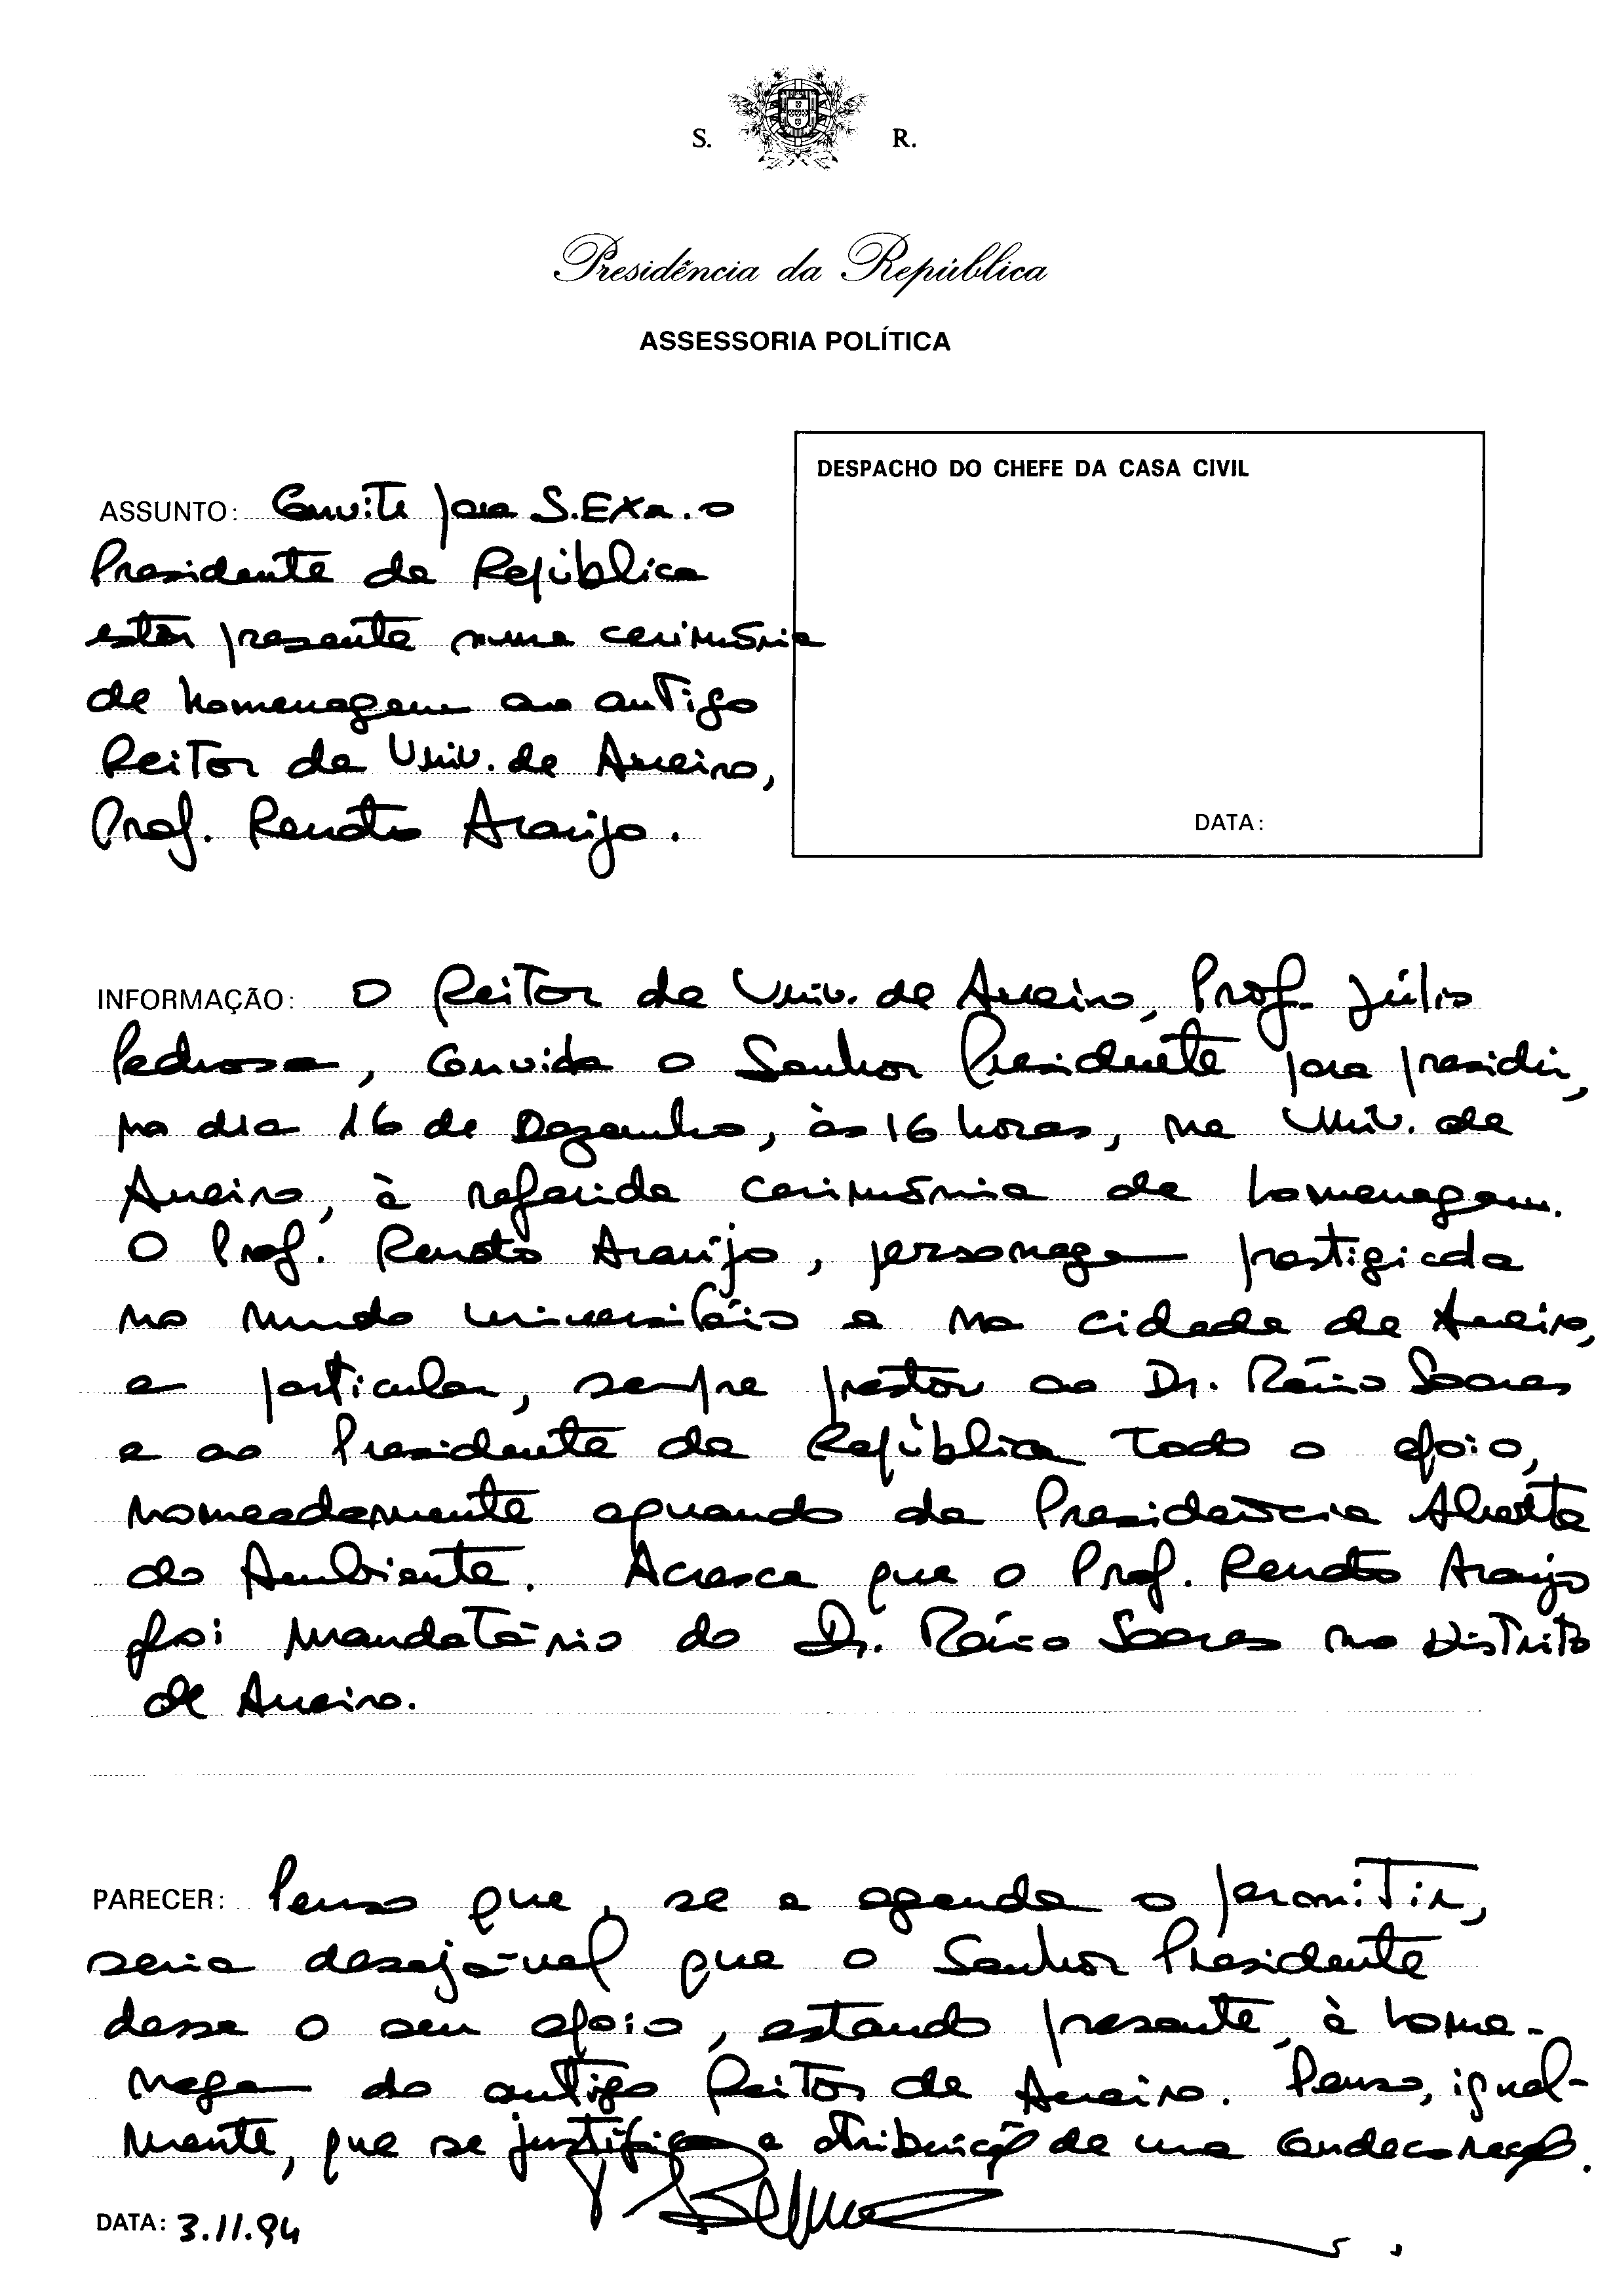 S. R.
Presidência da República
ASSESSORIA POLÍTICA
DESPACHO DO CHEFE DA CASA CIVIL
DATA:
ASSUNTO: Convite para S.EXa. o
Presidente da República
estar presente numa cerimónia
de homenagem ao antigo
Reitor da Univ. de Aveiro,
Prof. Renato Araújo.
INFORMAÇÃO: O Reitor da Univ. de Aveiro, Prof. Júlio
Pedrosa, convida o Senhor Presidente para presidir,
no dia 16 de Dezembro, às 16 horas, na Univ. de
Aveiro, à referida cerimónia de homenagem.
O Prof. Renato Araújo, personagem prestigiada
no mundo universitário e na cidade de Aveiro,
em particular, sempre prestou ao Dr. Mário Soares
e ao Presidente da República todo o apoio,
nomeadamente aquando da Presidência Aberta
do Ambiente. Acresce que o Prof. Renato Araújo
foi mandatário do Dr. Mário Soares no Distrito
de Aveiro.
PARECER: Penso que, se a agenda o permitir,
seria desejável que o Senhor Presidente
desse o seu apoio, estando presente, à home-
nagem do antigo Reitor de Aveiro. Penso, igual-
mente, que se justifica a atribuição de uma condecoração.
DATA: 3.11.94